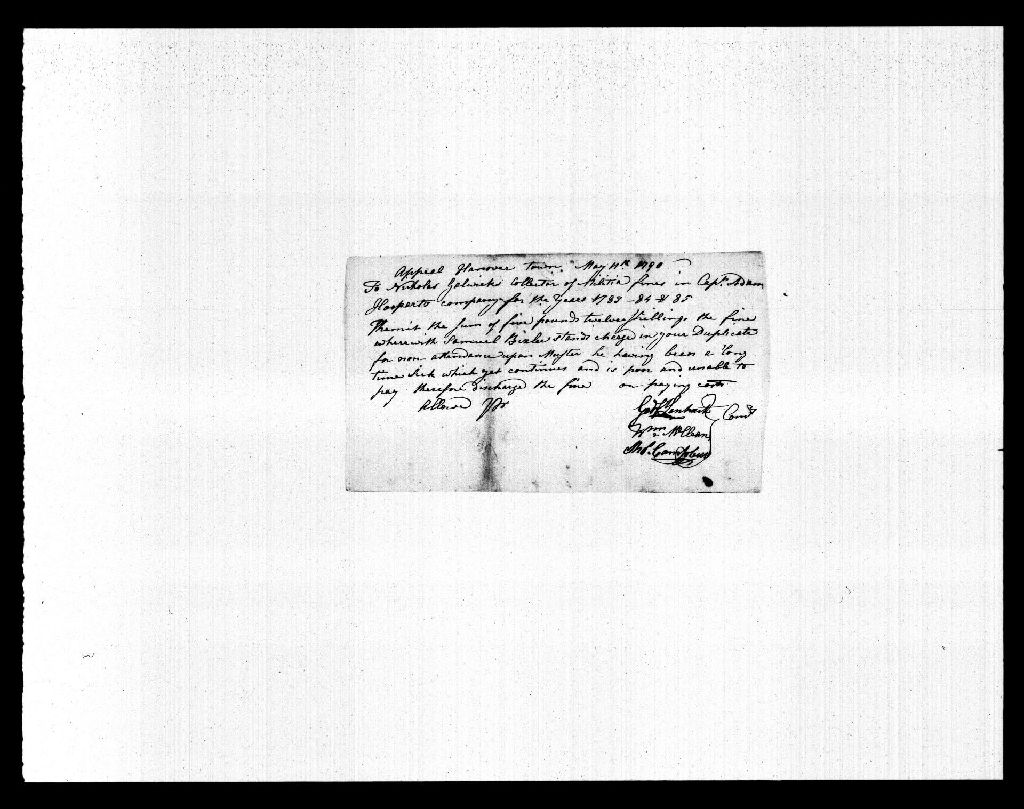 Appeal Hanover town May 11th 1790
To Nicholas Gelwicks Collector of Militia fines in Capt. Adam
Hoopert's company for the Years 1783 - 84 & 85
Remit the Sum of five pounds twelve shillings the fine
wherewith Samuel Bixler Stands charged in your Duplicate
for non attendance upon Muster he having been a long
time Sick which yet continues and is poor and unable to
pay therefore discharge the fine on paying costs
Wm McClean